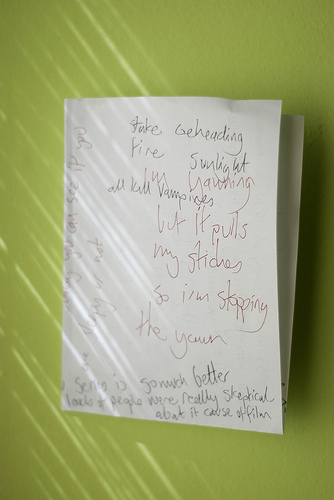 stake beheading
fire sunlight
im yawning
all kill vampires
but it pulls
my stiches
so i'm stopping
the yawn
series is so much better
loads of people were really skeptical
about it cause of film
you can see if you
not